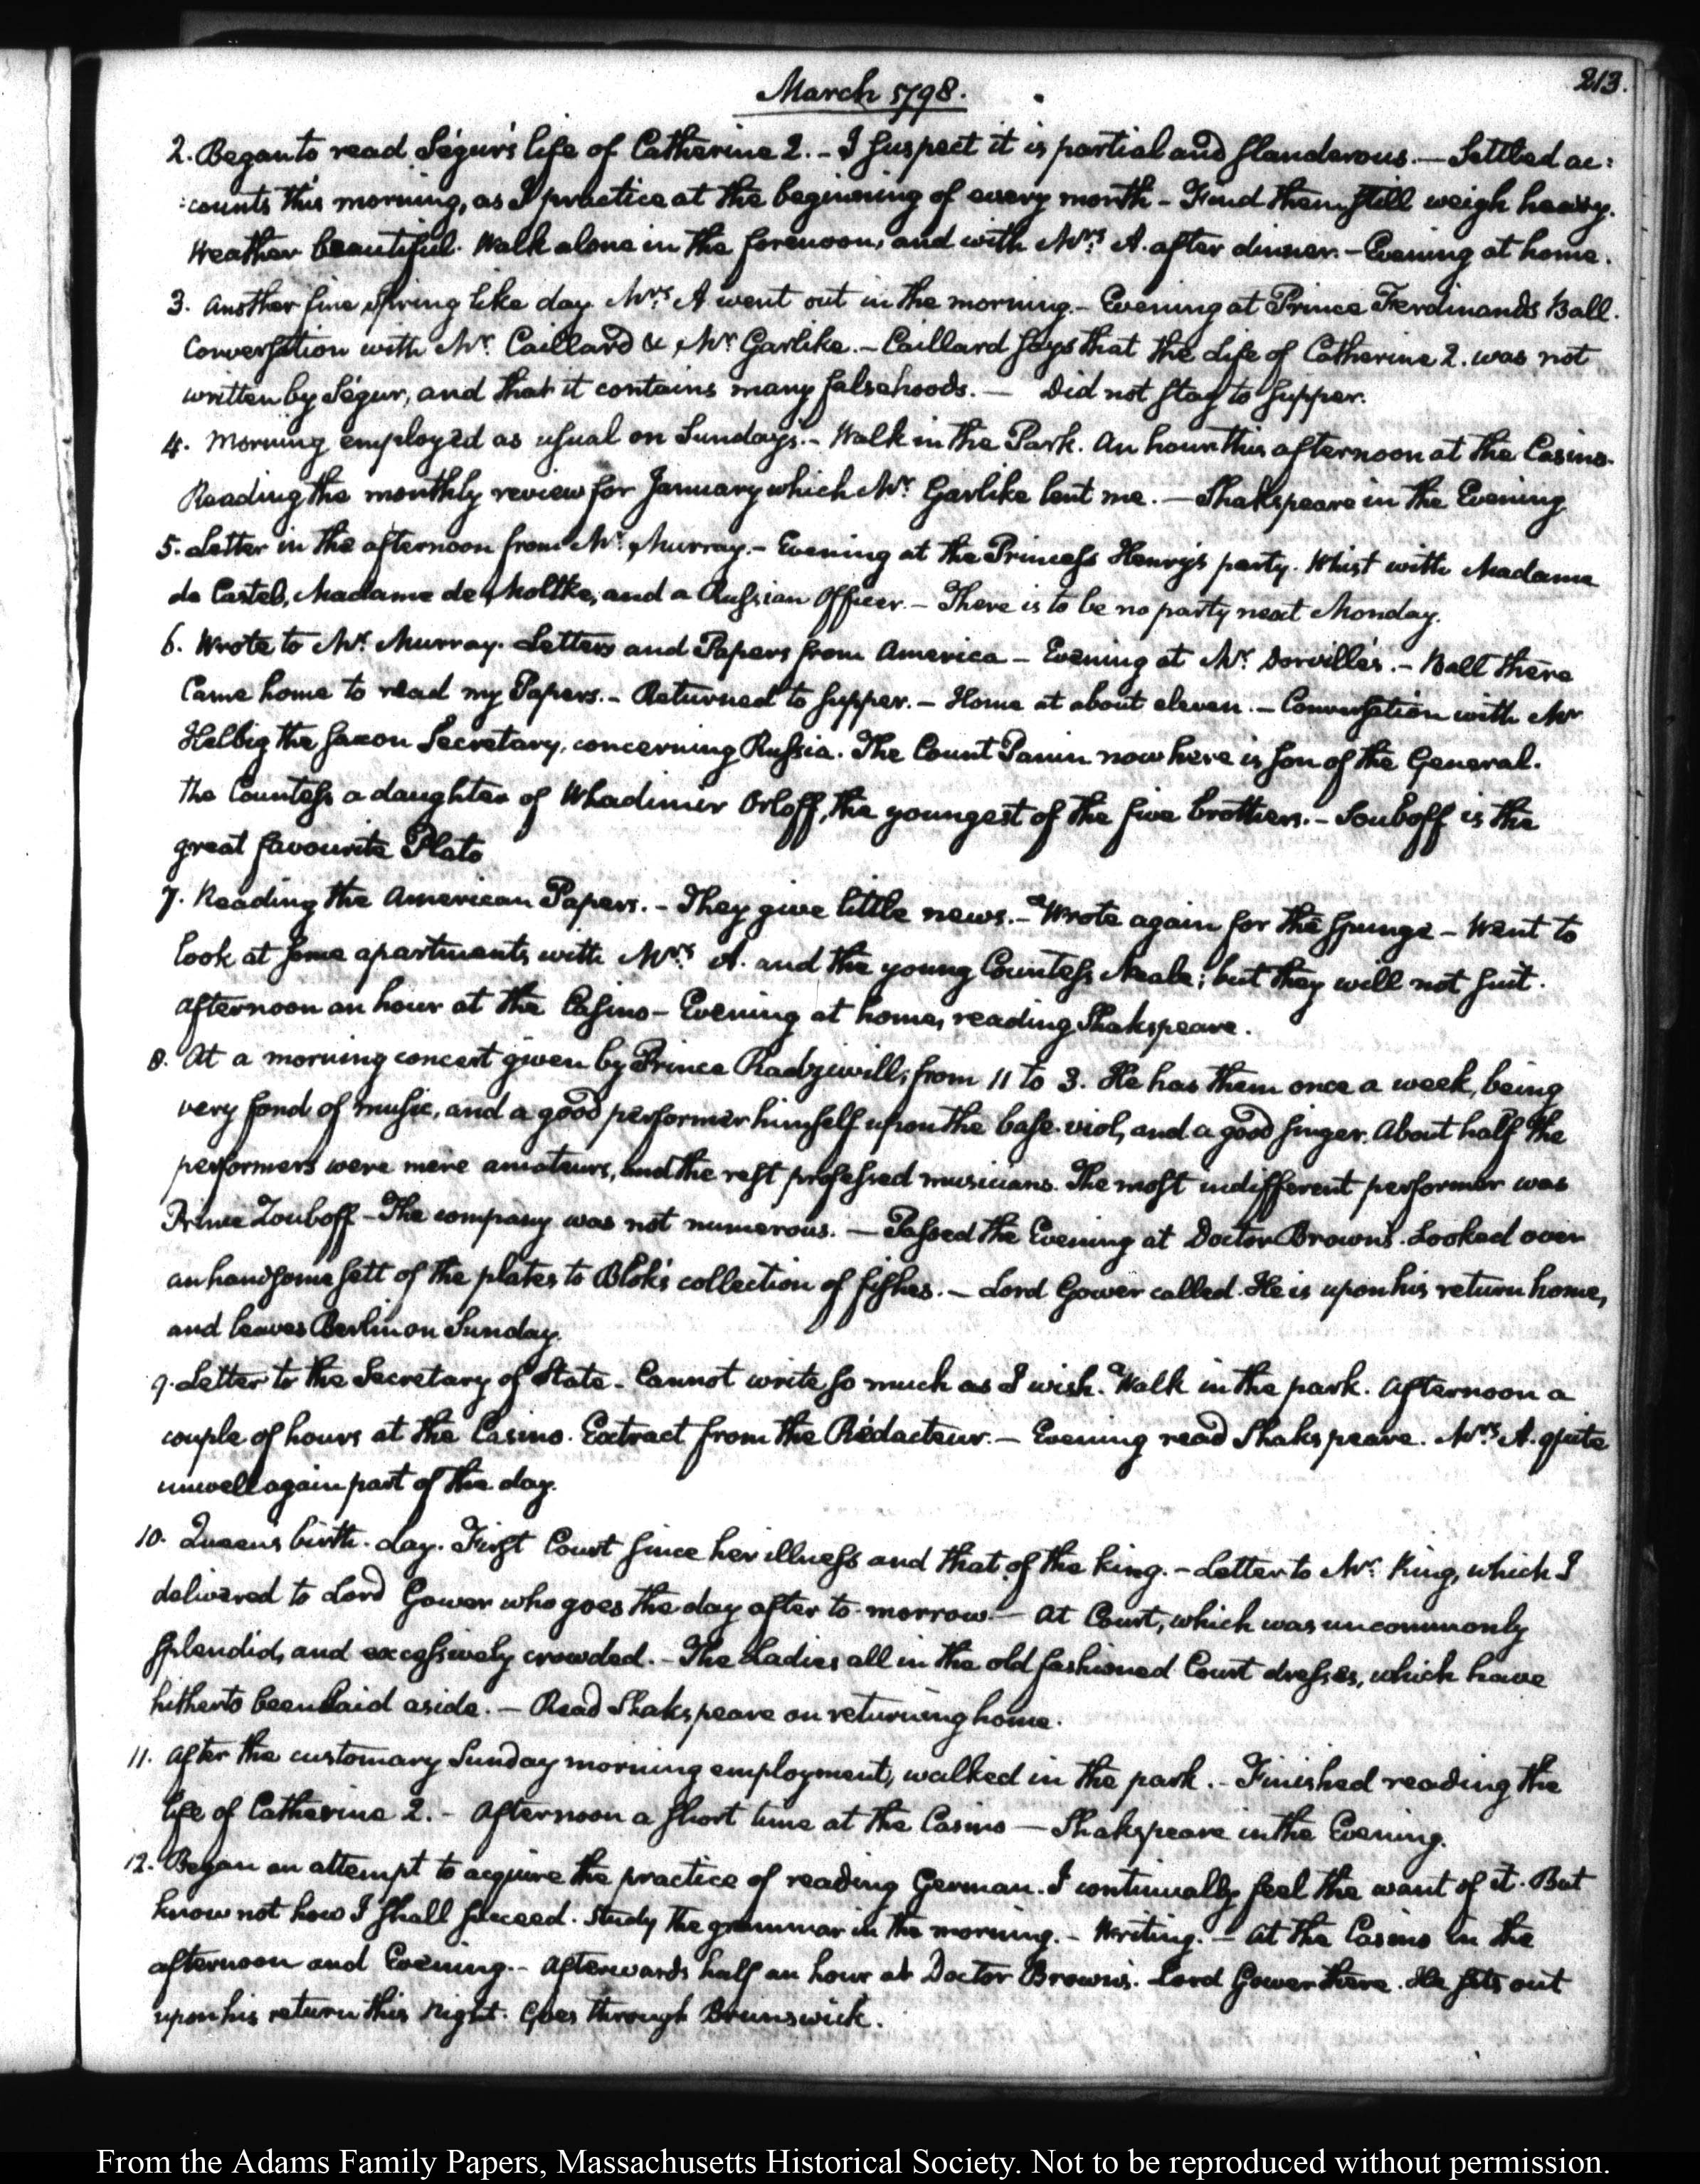 213.
March 1798.
2. Began to read Ségur's life of Catherine 2. - I suspect it is partial and slanderous. — Settled ac:
:counts this morning, as I practice at the beginning of every month - Find them still weigh heavy.
Weather beautiful. Walk alone in the forenoon, and with Mrs. A. after dinner. - Evening at home.
3. Another fine Spring like day. Mrs. A went out in the morning. - Evening at Prince Ferdinands Ball.
Conversation with Mr. Caillard & Mr. Garlike. - Caillard says that the Life of Catherine 2. was not
written by Ségur, and that it contains many falsehoods. — Did not stay to supper.
4. Morning employed as usual on Sundays. - Walk in the Park. An hour this afternoon at the Casino.
Reading the monthly review for January which Mr. Garlike lent me. — Shakspeare in the Evening
5. Letter in the afternoon from Mr. Murray. - Evening at the Princess Henry's party. Whist with Madame
de Castel, Madame de Moltke, and a Russian Officer. - There is to be no party next Monday.
6. Wrote to Mr. Murray. Letters and Papers from America - Evening at Mr. Dorville's. - Ball there
Came home to read my Papers. - Returned to supper. - Home at about eleven. - Conversation with Mr
Helbig the Saxon Secretary, concerning Russia. The Count Panin now here is son of the General.
The Countess a daughter of Whadimir Orloff, the youngest of the five brothers. - Souboff is the
great favourite Plato
7. Reading the American Papers. - They give little news. - Wrote again for the Spunge - Went to
look at some apartments with Mrs. A. and the young Countess Neale; but they will not suit.
Afternoon an hour at the Casino - Evening at home, reading Shakspeare.
8. At a morning concert given by Prince Radziwill, from 11 to 3. He has them once a week, being
very fond of music, and a good performer himself upon the base-viol, and a good singer. About half the
performers were mere amateurs, and the rest professed musicians. The most indifferent performer was
Prince Zouboff - The company was not numerous. — Passed the Evening at Doctor Brown's. Looked over
an handsome sett of the plates to Blok's collection of fishes. — Lord Gower called. He is upon his return home,
and leaves Berlin on Sunday.
9. Letter to the Secretary of State - Cannot write so much as I wish. Walk in the park. Afternoon a
couple of hours at the Casino. Extract from the Rédacteur. — Evening read Shakspeare. Mrs. A. quite
unwell again part of the day.
10. Queens birth-day. First Court since her illness and that of the King. - Letter to Mr. King, which I
delivered to Lord Gower who goes the day after to-morrow. - At Court, which was uncommonly
splendid, and excessively crowded. - The Ladies all in the old fashioned Court dresses, which have
hitherto been laid aside. — Read Shakspeare on returning home.
11. After the customary Sunday morning employment, walked in the park. - Finished reading the
life of Catherine 2. - Afternoon a short time at the Casino — Shakspeare in the Evening.
12. Began an attempt to acquire the practice of reading German. I continually feel the want of it. But
know not how I shall succeed. Study the grammar in the morning. - Writing. - At the Casino in the
afternoon and Evening. - Afterwards half an hour at Doctor Brown's. Lord Gower there. He sets out
upon his return this Night. Goes through Brunswick.
From the Adams Family Papers, Massachusetts Historical Society. Not to be reproduced without permission.